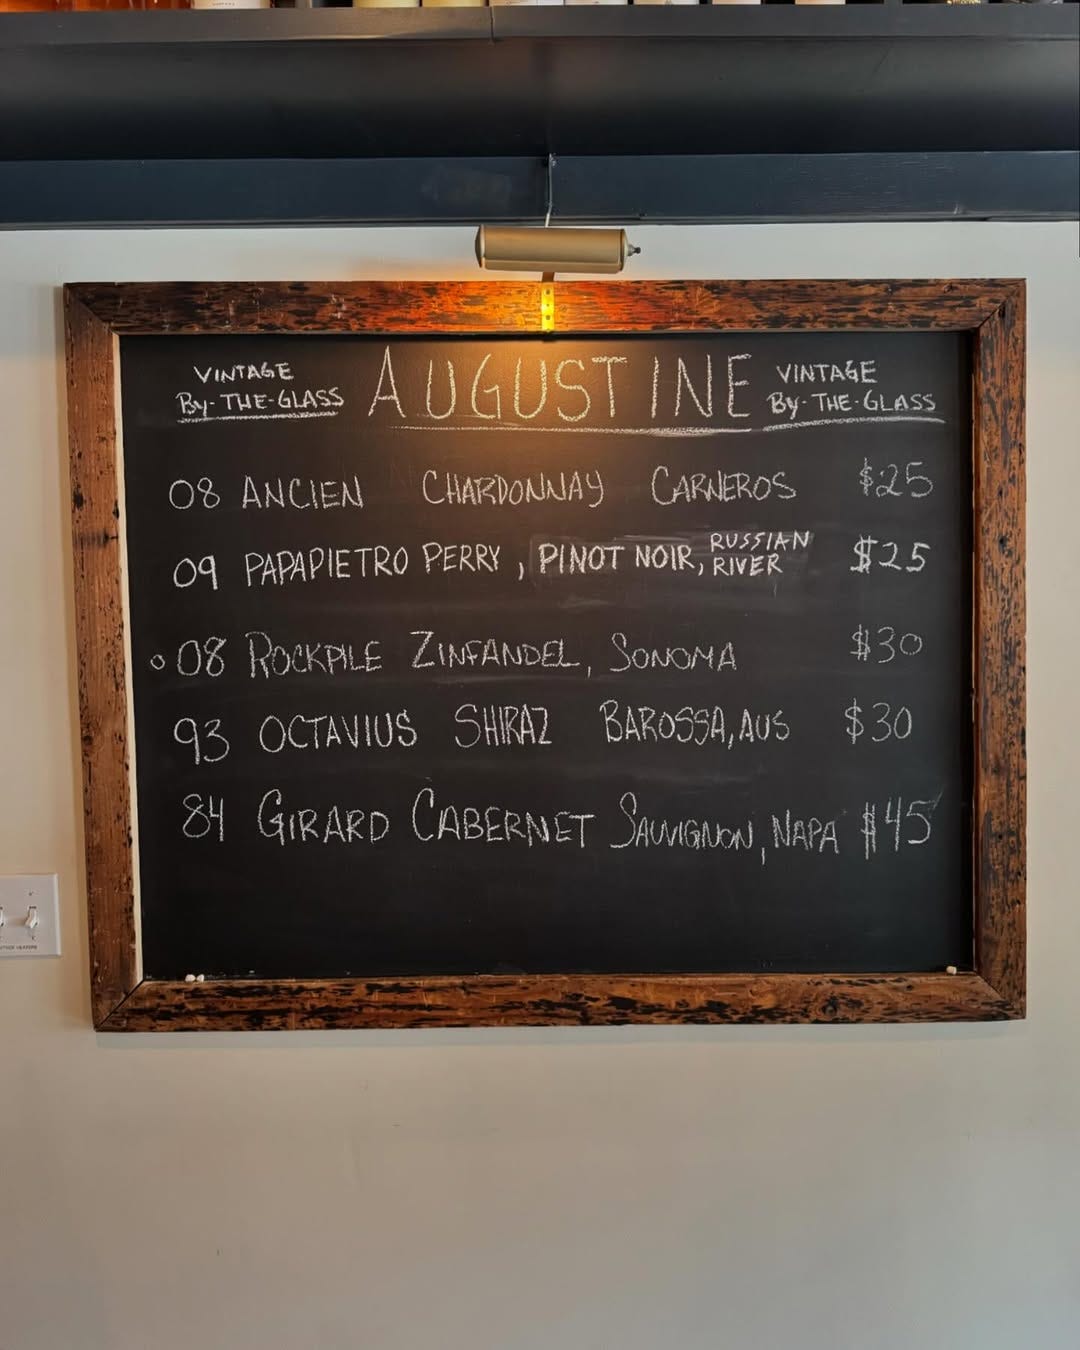 VINTAGE
By-THE-GLASS
AUGUSTINE
VINTAGE
By-THE-GLASS
08 ANCIEN CHARDONNAY CARNEROS $25
09 PAPAPIETRO PERRY, PINOT NOIR, RUSSIAN RIVER $25
08 ROCKPILE ZINFANDEL, SONOMA $30
93 OCTAVIUS SHIRAZ BAROSSA, AUS $30
84 GIRARD CABERNET SAUVIGNON, NAPA $45